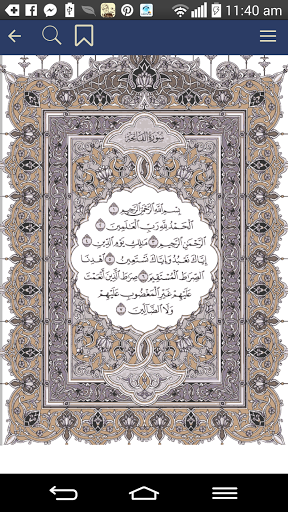 11:40 am
سورة الفاتحة
بِسْمِ ٱللَّهِ ٱلرَّحْمَٰنِ ٱلرَّحِيمِ ١
ٱلْحَمْدُ لِلَّهِ رَبِّ ٱلْعَٰلَمِينَ ٢
ٱلرَّحْمَٰنِ ٱلرَّحِيمِ ٣ مَٰلِكِ يَوْمِ ٱلدِّينِ ٤
إِيَّاكَ نَعْبُدُ وَإِيَّاكَ نَسْتَعِينُ ٥ ٱهْدِنَا
ٱلصِّرَٰطَ ٱلْمُسْتَقِيمَ ٦ صِرَٰطَ ٱلَّذِينَ أَنْعَمْتَ
عَلَيْهِمْ غَيْرِ ٱلْمَغْضُوبِ عَلَيْهِمْ
وَلَا ٱلضَّآلِّينَ ٧